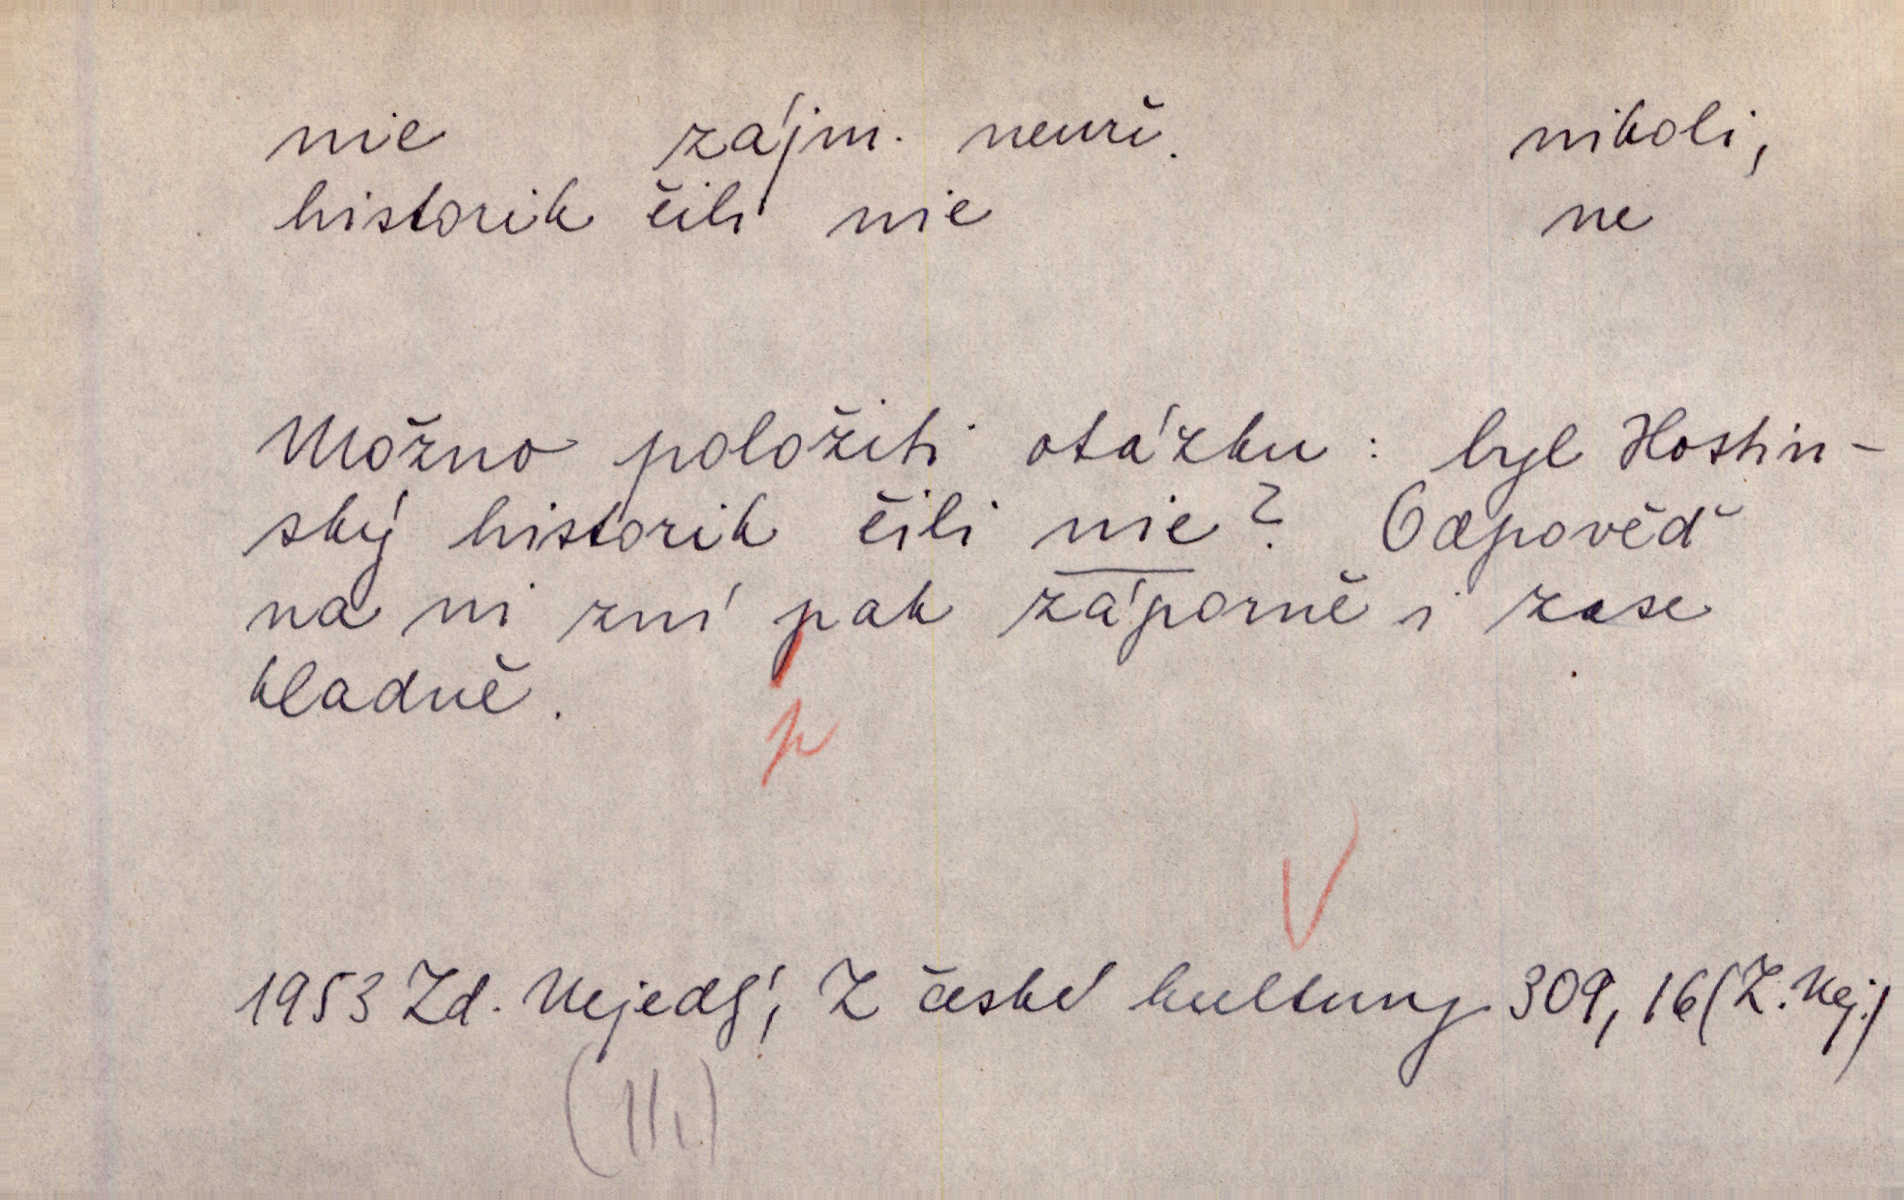 nic zájm. neurč. nikoli,
historik čili nic ne
Možno položiti otázku: byl Hostin-
ský historik čili nic? Odpověď
na ni zní pak záporně i zase
kladně.
p
1953 Zd. Nejedlý, Z české kultury 309, 16 (Z. Nej.)